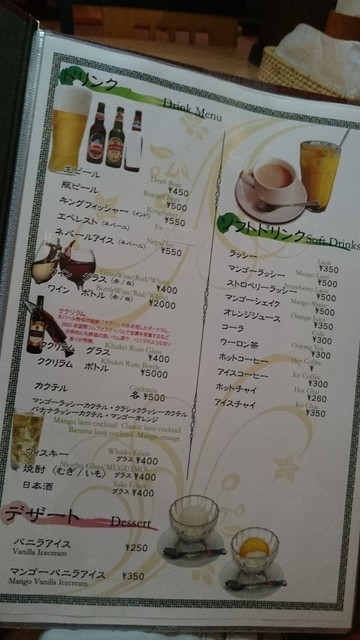 ドリンク
Drink Menu
生ビール
Draft Beer
¥450
瓶ビール
¥500
キングフィッシャー (インド)
¥550
エベレスト (ネパール)
ネパールアイス (ネパール)
¥550
グラス (赤/白)
¥400
ワイン ボトル (赤/白)
¥2000
ククリラム グラス
Khukri Rum Glass
¥400
ククリラム ボトル
Khukri Rum Bottle
¥5000
カクテル
Cocktails
各 ¥500
マンゴーラッシーカクテル・クラシックラッシーカクテル
バナナラッシーカクテル・マンゴーオレンジ
Mango lassi cocktail Classic lassi cocktail
Banana lassi cocktail Mango orange
ウィスキー
グラス ¥400
焼酎 (むぎ/いも)
グラス ¥400
日本酒
グラス ¥400
デザート
Dessert
バニラアイス
Vanilla Icecream
¥250
マンゴーバニラアイス
Mango Vanilla Icecream
¥350
ソフトドリンク Soft Drinks
ラッシー
Lassi
¥350
マンゴーラッシー
Mango Lassi
¥500
ストロベリーラッシー
¥500
マンゴーシェイク
¥500
オレンジジュース
¥350
コーラ
¥300
ウーロン茶
Oolong Tea
¥300
ホットコーヒー
Hot Coffee
アイスコーヒー
Ice Coffee
¥300
ホットチャイ
Hot Chai
¥260
アイスチャイ
Ice Chai
¥350